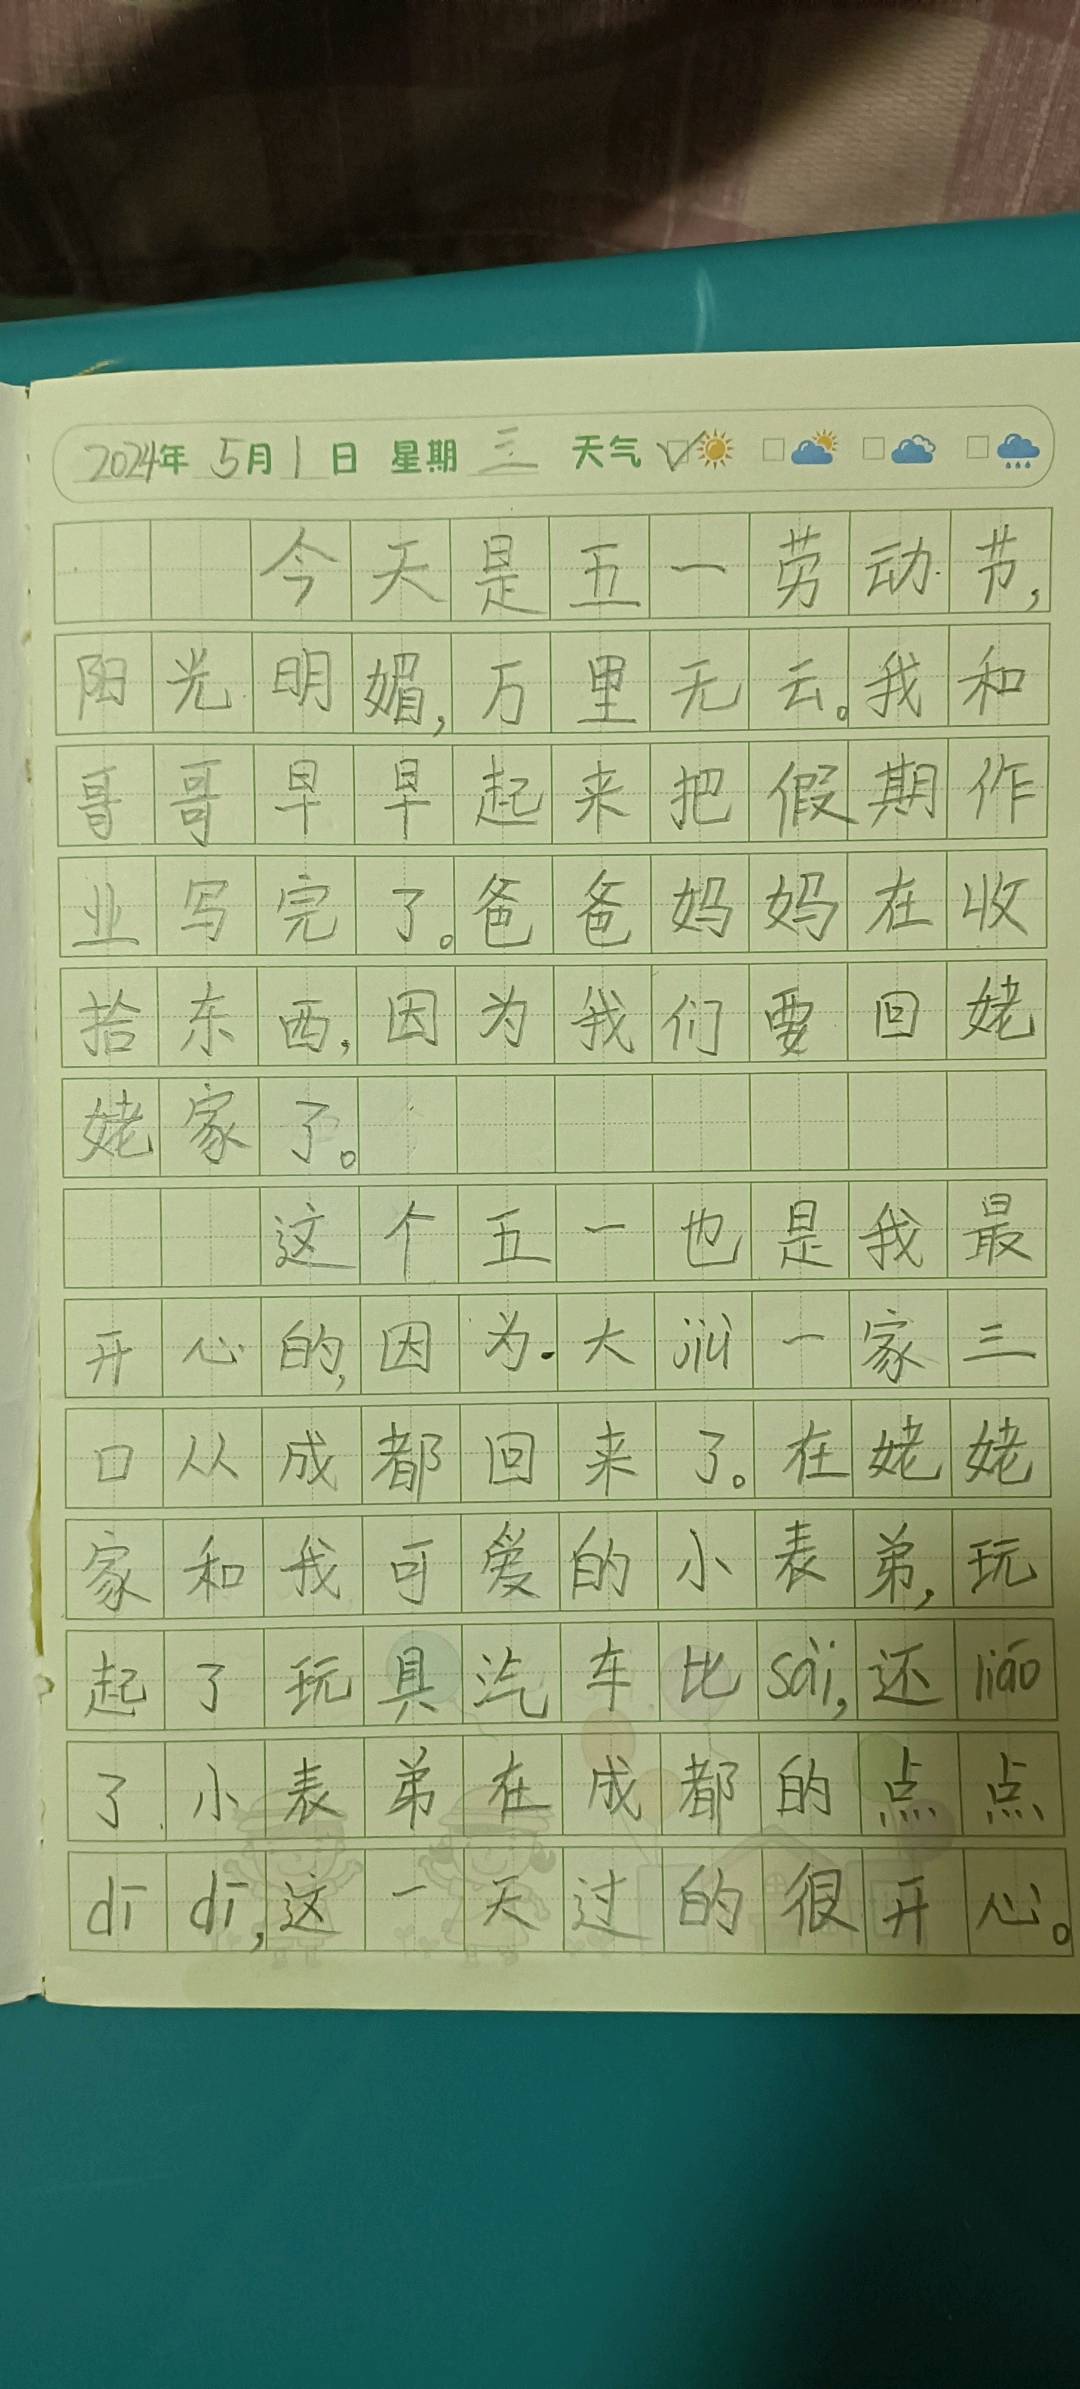 2024年 5月1日 星期三 天气
今天是五一劳动节,
阳光明媚,万里无云。我和
哥哥早早起来把假期作
业写完了。爸爸妈妈在收
拾东西,因为我们要回姥
姥家了。
这个五一也是我最
开心的,因为.大jiù一家三
口从成都回来了。在姥姥
家和我可爱的小表弟,玩
起了玩具汽车比sài,还liáo
了小表弟在成都的点点
dī dī,这一天过的很开心。